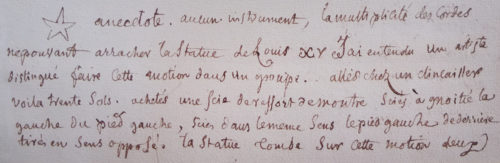 anecdote. aucun instrument, la multiplicité des Cordes
ne pouvant arracher la Statue de Louis XV J'ai entendu un artiste
distingué faire Cette motion dans un groupe. allés chez un clincailler
voila trente Sols. achetés une Scie de ressort de montre Sciés à moitié la
gauche du pied gauche, Sciés dans le meme Sens le pied gauche de derrière
tirés en Sens opposé. la Statue tombe Sur Cette motion